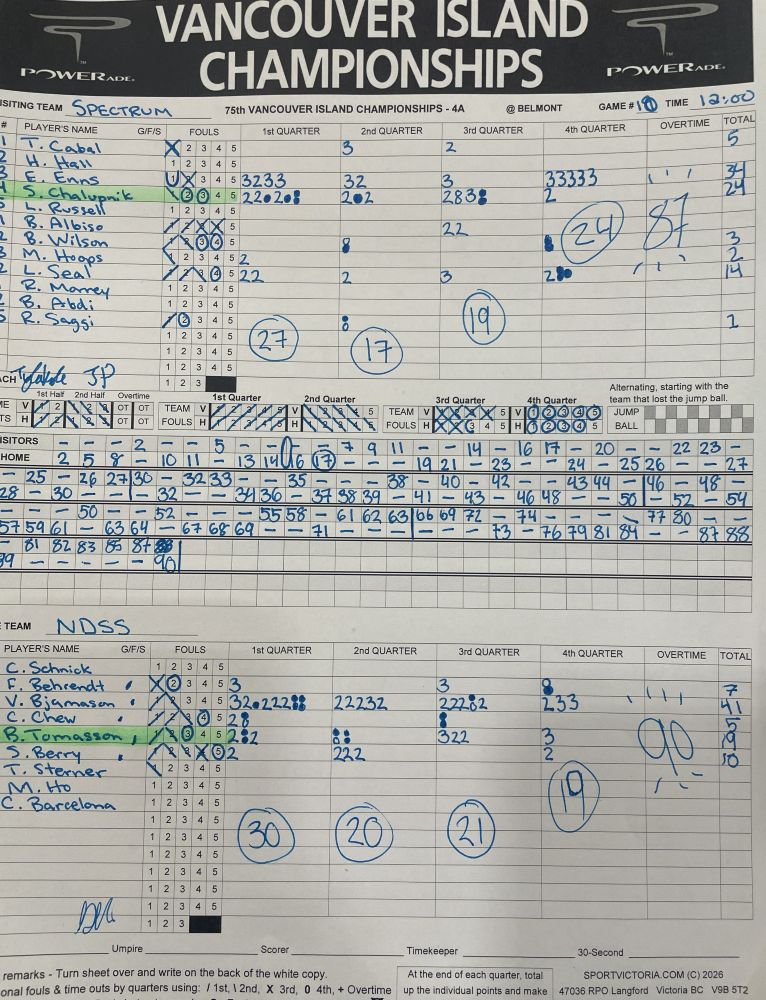 VANCOUVER ISLAND
CHAMPIONSHIPS
POWERADE TM
POWERADE TM
ISITING TEAM SPECTRUM 75th VANCOUVER ISLAND CHAMPIONSHIPS - 4A @ BELMONT GAME # TIME 12:00
# PLAYER'S NAME G/F/S FOULS 1st QUARTER 2nd QUARTER 3rd QUARTER 4th QUARTER OVERTIME TOTAL
T. Cabal 2 3 4 5 3 2 5
H. Hall 1 2 3 4 5
E. Enns 3 4 5 3233 32 3 33333 34
S. Chalupnik 2 3 4 5 24
L. Russell
B. Albiso 5 22
B. Wilson 3 4 5 3
M. Hoops 2 3 4 5 2 2
L. Seal 4 5 22 2 3 14
R. Marrey 1 2 3 4 5
B. Abdi 1 2 3 4 5
R. Saggi 2 3 4 5
1 2 3 4 5
27 17 19 24 87
1 2 3 4 5
1 2 3 4 5
ACH JP 1 2 3
1st Half 2nd Half Overtime 1st Quarter 2nd Quarter 3rd Quarter 4th Quarter
Alternating, starting with the team that lost the jump ball.
ME V OT OT TEAM V 5 TEAM V 5 V 1 2 3 4 5 JUMP
TS H OT OT FOULS H 5 FOULS H 3 4 5 H 1 2 3 4 5 BALL
ISITORS - - - 2 - - 5 - - - - - 7 9 11 - - 14 - 16 17 - 20 - - 22 23 -
HOME 2 5 8 - 10 11 - 13 14 16 17 - - - 19 21 - 23 - - 24 - 25 26 - - 27
- 25 - 26 27 30 - 32 33 - - 35 - - - 38 - 40 - 42 - - 43 44 - 46 - 48 -
28 - 30 - - - 32 - - 34 36 - 37 38 39 - 41 - 43 - 46 48 - - 50 - 52 - 54
- - - 50 - - 52 - - - 55 58 - 61 62 63 66 69 72 - 74 - - - - 77 80 - -
57 59 61 - 63 64 - 67 68 69 - - 71 - - - - - - 73 - 76 79 81 84 - - 87 88
- 81 82 83 85 87
89 - - - - - 90
E TEAM NDSS
PLAYER'S NAME G/F/S FOULS 1st QUARTER 2nd QUARTER 3rd QUARTER 4th QUARTER OVERTIME TOTAL
C. Schnick 1 2 3 4 5
F. Behrendt 2 3 4 5 3 3 7
V. Bjarnason 3 4 5 22232 233 41
C. Chew 4 5 5
B. Tomasson 3 4 5 322 3 19
S. Berry 5 2 222 2 10
T. Sterner 2 3 4 5
M. Ho 1 2 3 4 5
C. Barcelona 1 2 3 4 5
1 2 3 4 5
30 20 21 19 90
1 2 3 4 5
1 2 3 4 5
1 2 3 4 5
1 2 3 4 5
1 2 3 4 5
1 2 3
Umpire Scorer Timekeeper 30-Second
remarks - Turn sheet over and write on the back of the white copy.
onal fouls & time outs by quarters using: / 1st, \ 2nd, X 3rd, 0 4th, + Overtime
At the end of each quarter, total
up the individual points and make
SPORTVICTORIA.COM (C) 2026
47036 RPO Langford Victoria BC V9B 5T2